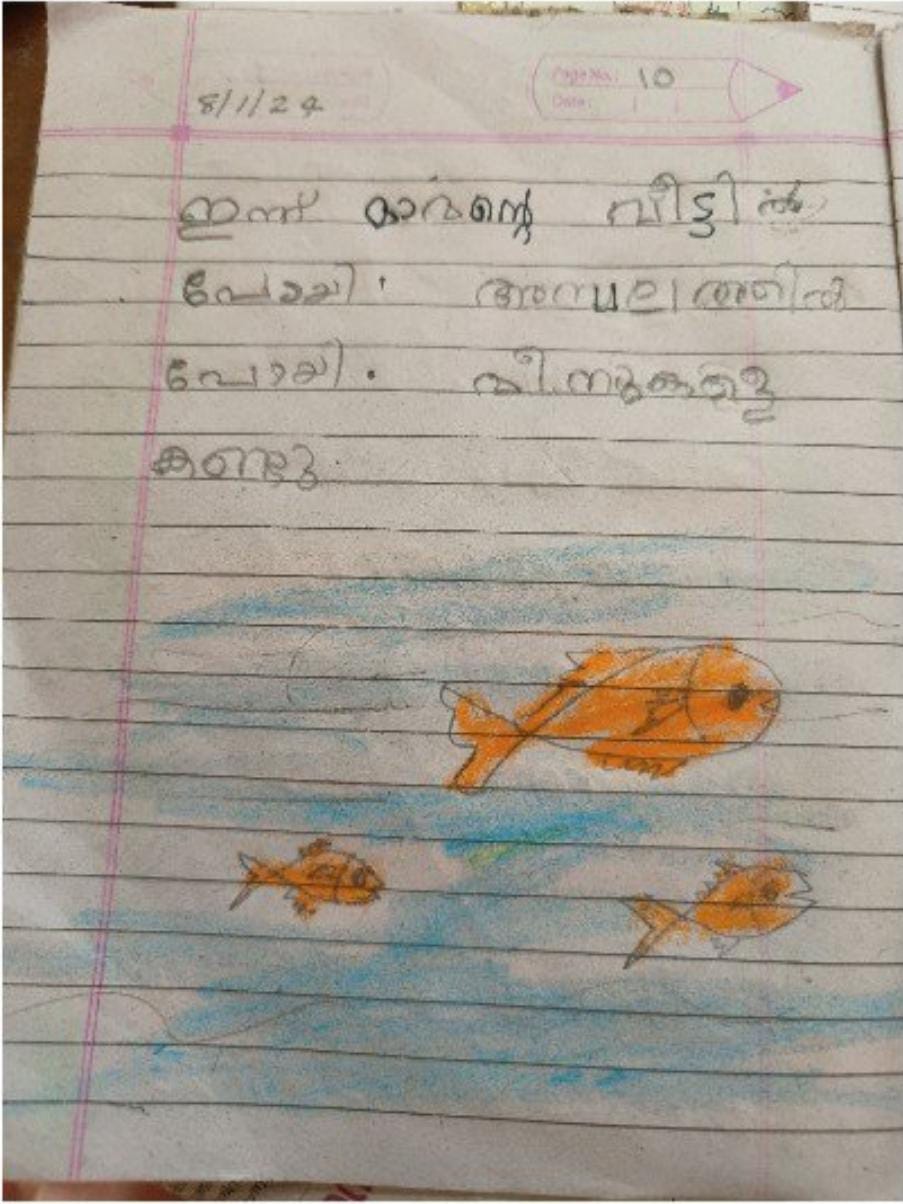 8/1/24
Page No.: 10
Date:
ഇന്ന് മാമന്റെ വീട്ടിൽ
പോയി. അമ്പലത്തിൽ
പോയി. മീനുകളെ
കണ്ടു.